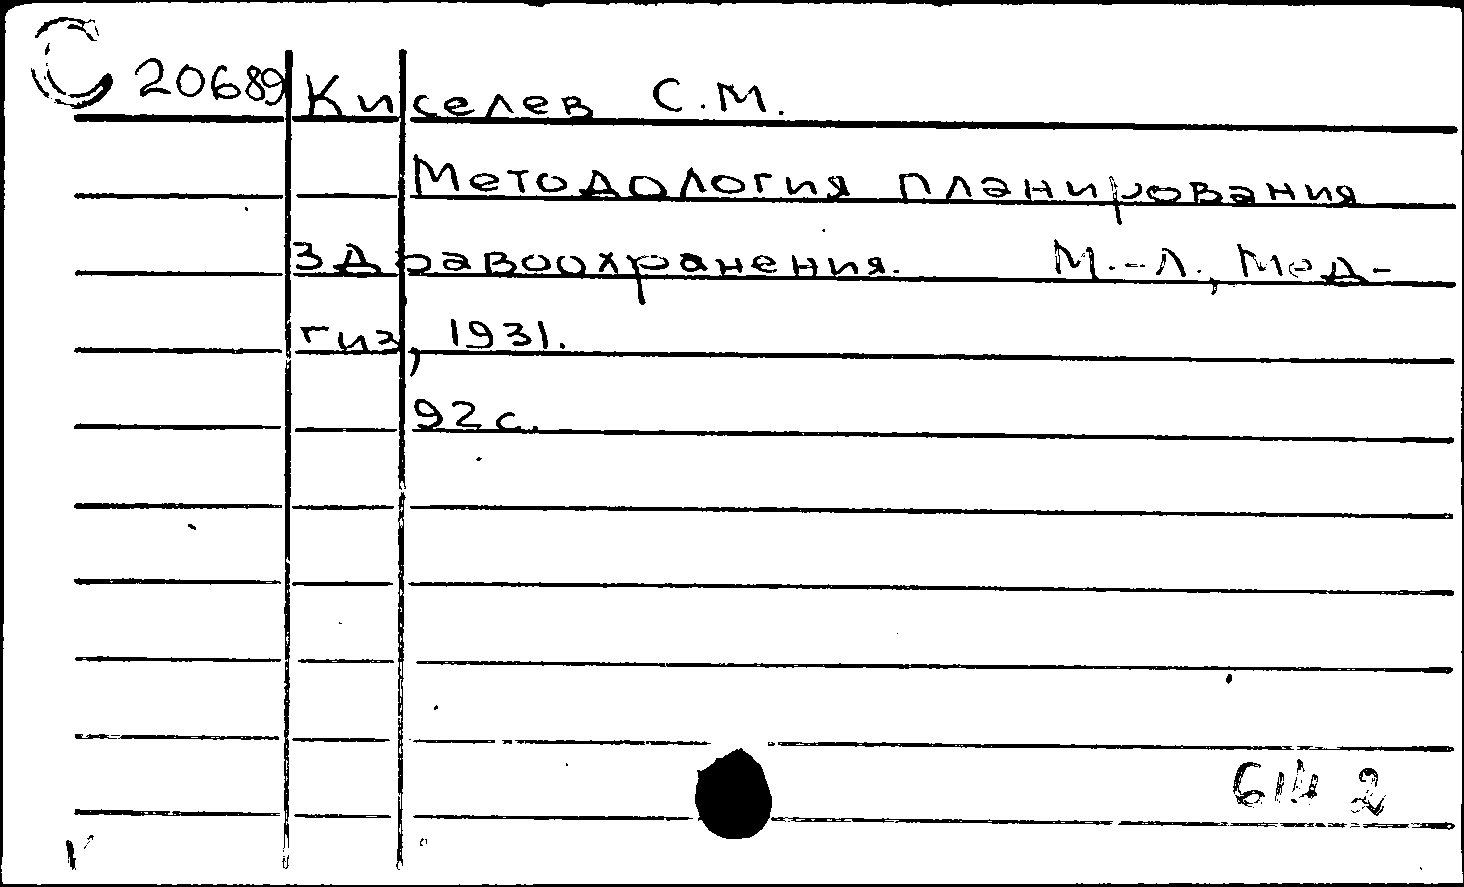 С 20689 Киселев С.М.
Методология планирования
здравоохранения. М.-Л., Мед-
гиз, 1931.
92 с.
614 2
V